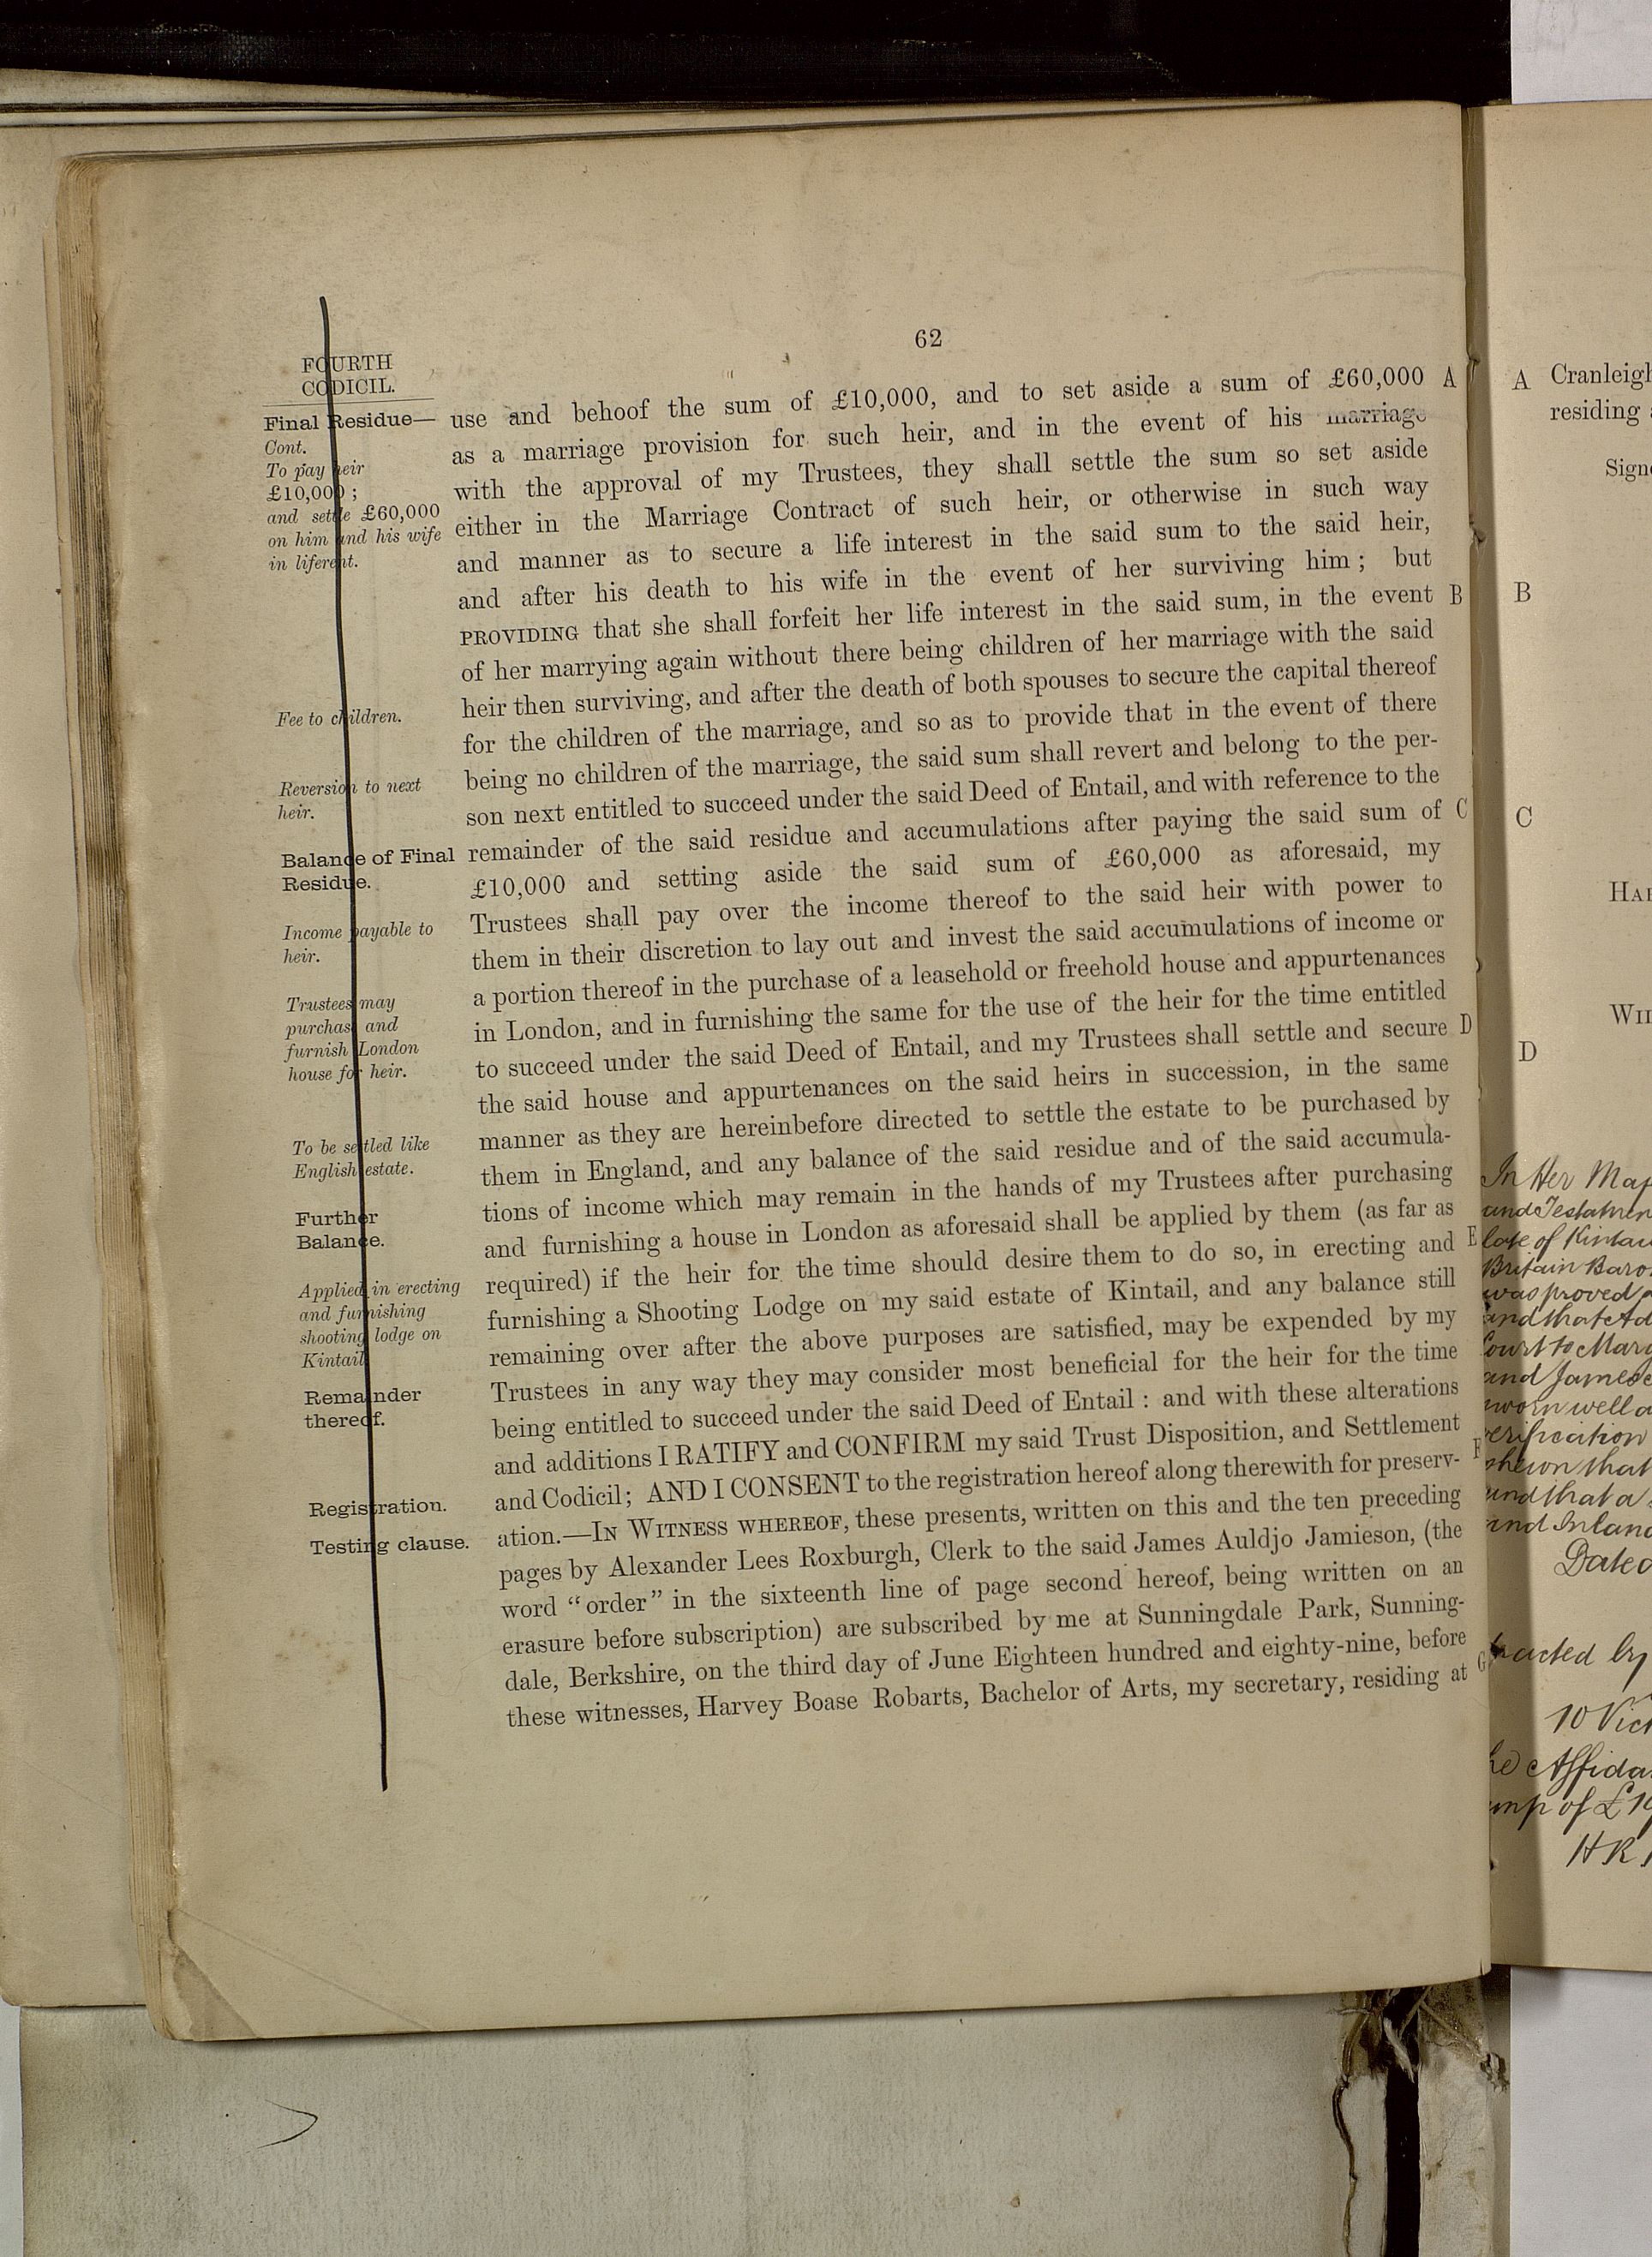 62
FOURTH
CODICIL.
Final Residue—
Cont.
To pay heir
£10,000;
and settle £60,000
on him and his wife
in liferent.
Fee to children.
Reversion to next
heir.
Balance of Final
Residue.
Income payable to
heir.
Trustees may
purchase and
furnish London
house for heir.
To be settled like
English estate.
Further
Balance.
Applied in erecting
and furnishing
shooting lodge on
Kintail
Remainder
thereof.
Registration.
Testing clause.
use and behoof the sum of £10,000, and to set aside a sum of £60,000 A
as a marriage provision for such heir, and in the event of his marriage
with the approval of my Trustees, they shall settle the sum so set aside
either in the Marriage Contract of such heir, or otherwise in such way
and manner as to secure a life interest in the said sum to the said heir,
and after his death to his wife in the event of her surviving him; but
PROVIDING that she shall forfeit her life interest in the said sum, in the event B
of her marrying again without there being children of her marriage with the said
heir then surviving, and after the death of both spouses to secure the capital thereof
for the children of the marriage, and so as to provide that in the event of there
being no children of the marriage, the said sum shall revert and belong to the per-
son next entitled to succeed under the said Deed of Entail, and with reference to the
remainder of the said residue and accumulations after paying the said sum of C
£10,000 and setting aside the said sum of £60,000 as aforesaid, my
Trustees shall pay over the income thereof to the said heir with power to
them in their discretion to lay out and invest the said accumulations of income or
a portion thereof in the purchase of a leasehold or freehold house and appurtenances
in London, and in furnishing the same for the use of the heir for the time entitled
to succeed under the said Deed of Entail, and my Trustees shall settle and secure D
the said house and appurtenances on the said heirs in succession, in the same
manner as they are hereinbefore directed to settle the estate to be purchased by
them in England, and any balance of the said residue and of the said accumula-
tions of income which may remain in the hands of my Trustees after purchasing
and furnishing a house in London as aforesaid shall be applied by them (as far as
required) if the heir for the time should desire them to do so, in erecting and E
furnishing a Shooting Lodge on my said estate of Kintail, and any balance still
remaining over after the above purposes are satisfied, may be expended by my
Trustees in any way they may consider most beneficial for the heir for the time
being entitled to succeed under the said Deed of Entail: and with these alterations
and additions I RATIFY and CONFIRM my said Trust Disposition, and Settlement
and Codicil; AND I CONSENT to the registration hereof along therewith for preserv- F
ation.—IN WITNESS WHEREOF, these presents, written on this and the ten preceding
pages by Alexander Lees Roxburgh, Clerk to the said James Auldjo Jamieson, (the
word "order" in the sixteenth line of page second hereof, being written on an
erasure before subscription) are subscribed by me at Sunningdale Park, Sunning-
dale, Berkshire, on the third day of June Eighteen hundred and eighty-nine, before
these witnesses, Harvey Boase Robarts, Bachelor of Arts, my secretary, residing at G
A Cranleigh
residing
B
C
D
In Her Maj
and Testamen
late of Kintai
Britain Baro
was proved
and that Ad
Court to Mary
and James
sworn well a
verification
shewn that
and that a
and Inland
Dated
10 Vict
Affida
of £10